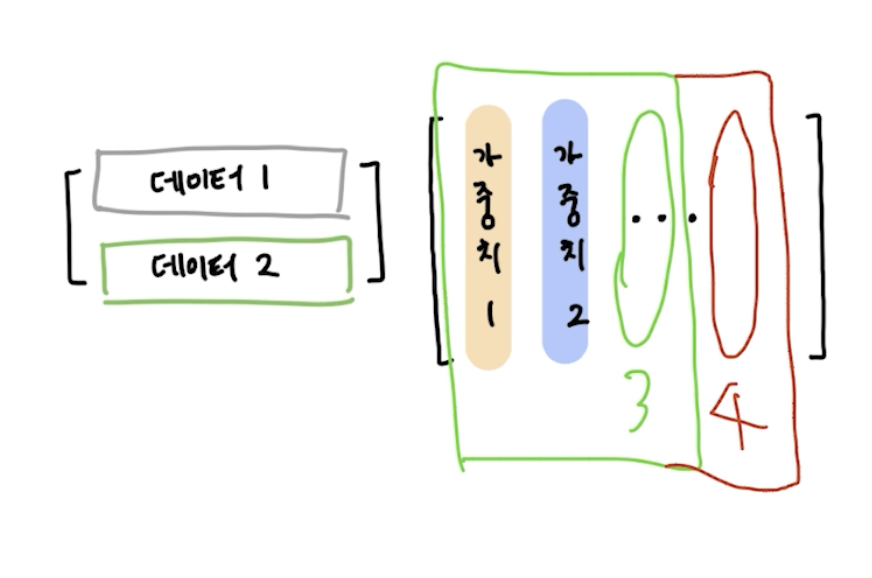 데이터 1
데이터 2
가중치 1
가중치 2
...
3
4